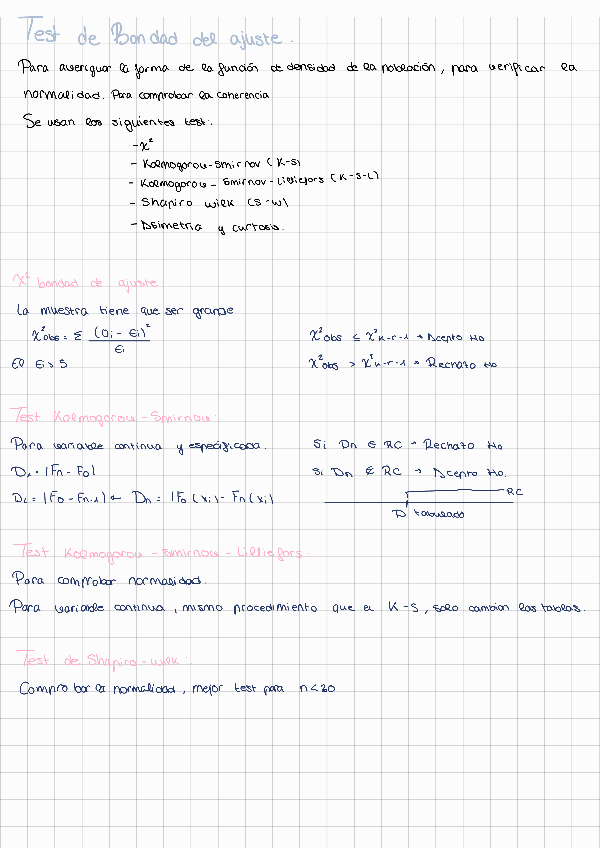 Test de Bondad del ajuste.
Para averiguar la forma de la función de densidad de la población, para verificar la
normalidad. Para comprobar la coherencia
Se usan los siguientes test:
- χ²
- Kolmogorov-Smirnov (K-S)
- Kolmogorov - Smirnov - Lilliefors (K-S-L)
- Shapiro wilk (S-W)
- Asimetria y curtosis.
χ² bondad de ajuste
La muestra tiene que ser grande
χ²obs = Σ (Oi - Ei)² / Ei
χ²obs ≤ χ²k-r-1 → Acepto Ho
El Ei > 5
χ²obs > χ²k-r-1 → Rechazo Ho
Test Kolmogorov - Smirnov:
Para variable continua y especificada.
Si Dn ∈ RC → Rechazo Ho
D1 = |Fn - F0|
Si Dn ∉ RC → Acepto Ho.
D2 = |F0 - Fn-1| ← Dn = |F0 (xi) - Fn (xi)
RC
D tabulado
Test Kolmogorov - Smirnov - Lilliefors.
Para comprobar normalidad.
Para variable continua, mismo procedimiento que el K-S, solo cambian las tablas.
Test de Shapiro-wilk:
Comprobar la normalidad, mejor test para n<30